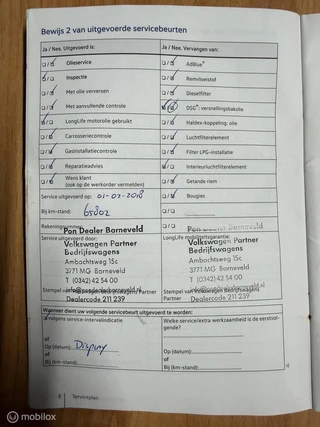 Bewijs 2 van uitgevoerde servicebeurten
Ja / Nee, Uitgevoerd is:
Ja / Nee, Vervangen van:
Olieservice
AdBlue®
Inspectie
Remvloeistof
Met olie verversen
Dieselfilter
Met aanvullende controle
DSG®: versnellingsbakolie
LongLife motorolie gebruikt
Haldex-koppeling; olie
Carrosseriecontrole
Luchtfilterelement
Gasinstallatiecontrole
Filter LPG-installatie
Reparatieadvies
Interieurluchtfilterelement
Wens klant
(ook op de werkorder vermelden)
Getande riem
Service uitgevoerd op: 01-02-2018
Bougies
Bij km-stand: 65802
Rekeningnummer:
Pon Dealer Barneveld
Pon Dealer Barneveld
Service uitgevoerd door:
LongLife mobiliteitsgarantie:
Volkswagen Partner
Bedrijfswagens
Ambachtsweg 15c
3771 MG Barneveld
T (0342) 42 54 00
Dealercode 211 239
Volkswagen Partner
Bedrijfswagens
Ambachtsweg 15c
3771 MG Barneveld
T (0342) 42 54 00
Dealercode 211 239
Wanneer dient uw volgende servicebeurt uitgevoerd te worden:
volgens service-intervalindicatie
Welke service/extra werkzaamheid is de eerstvol-
gende?
of
Op (datum): Display
of
Bij (km-stand):
of
Op (datum):
of
Bij (km-stand):
8 Serviceplan
© mobilox